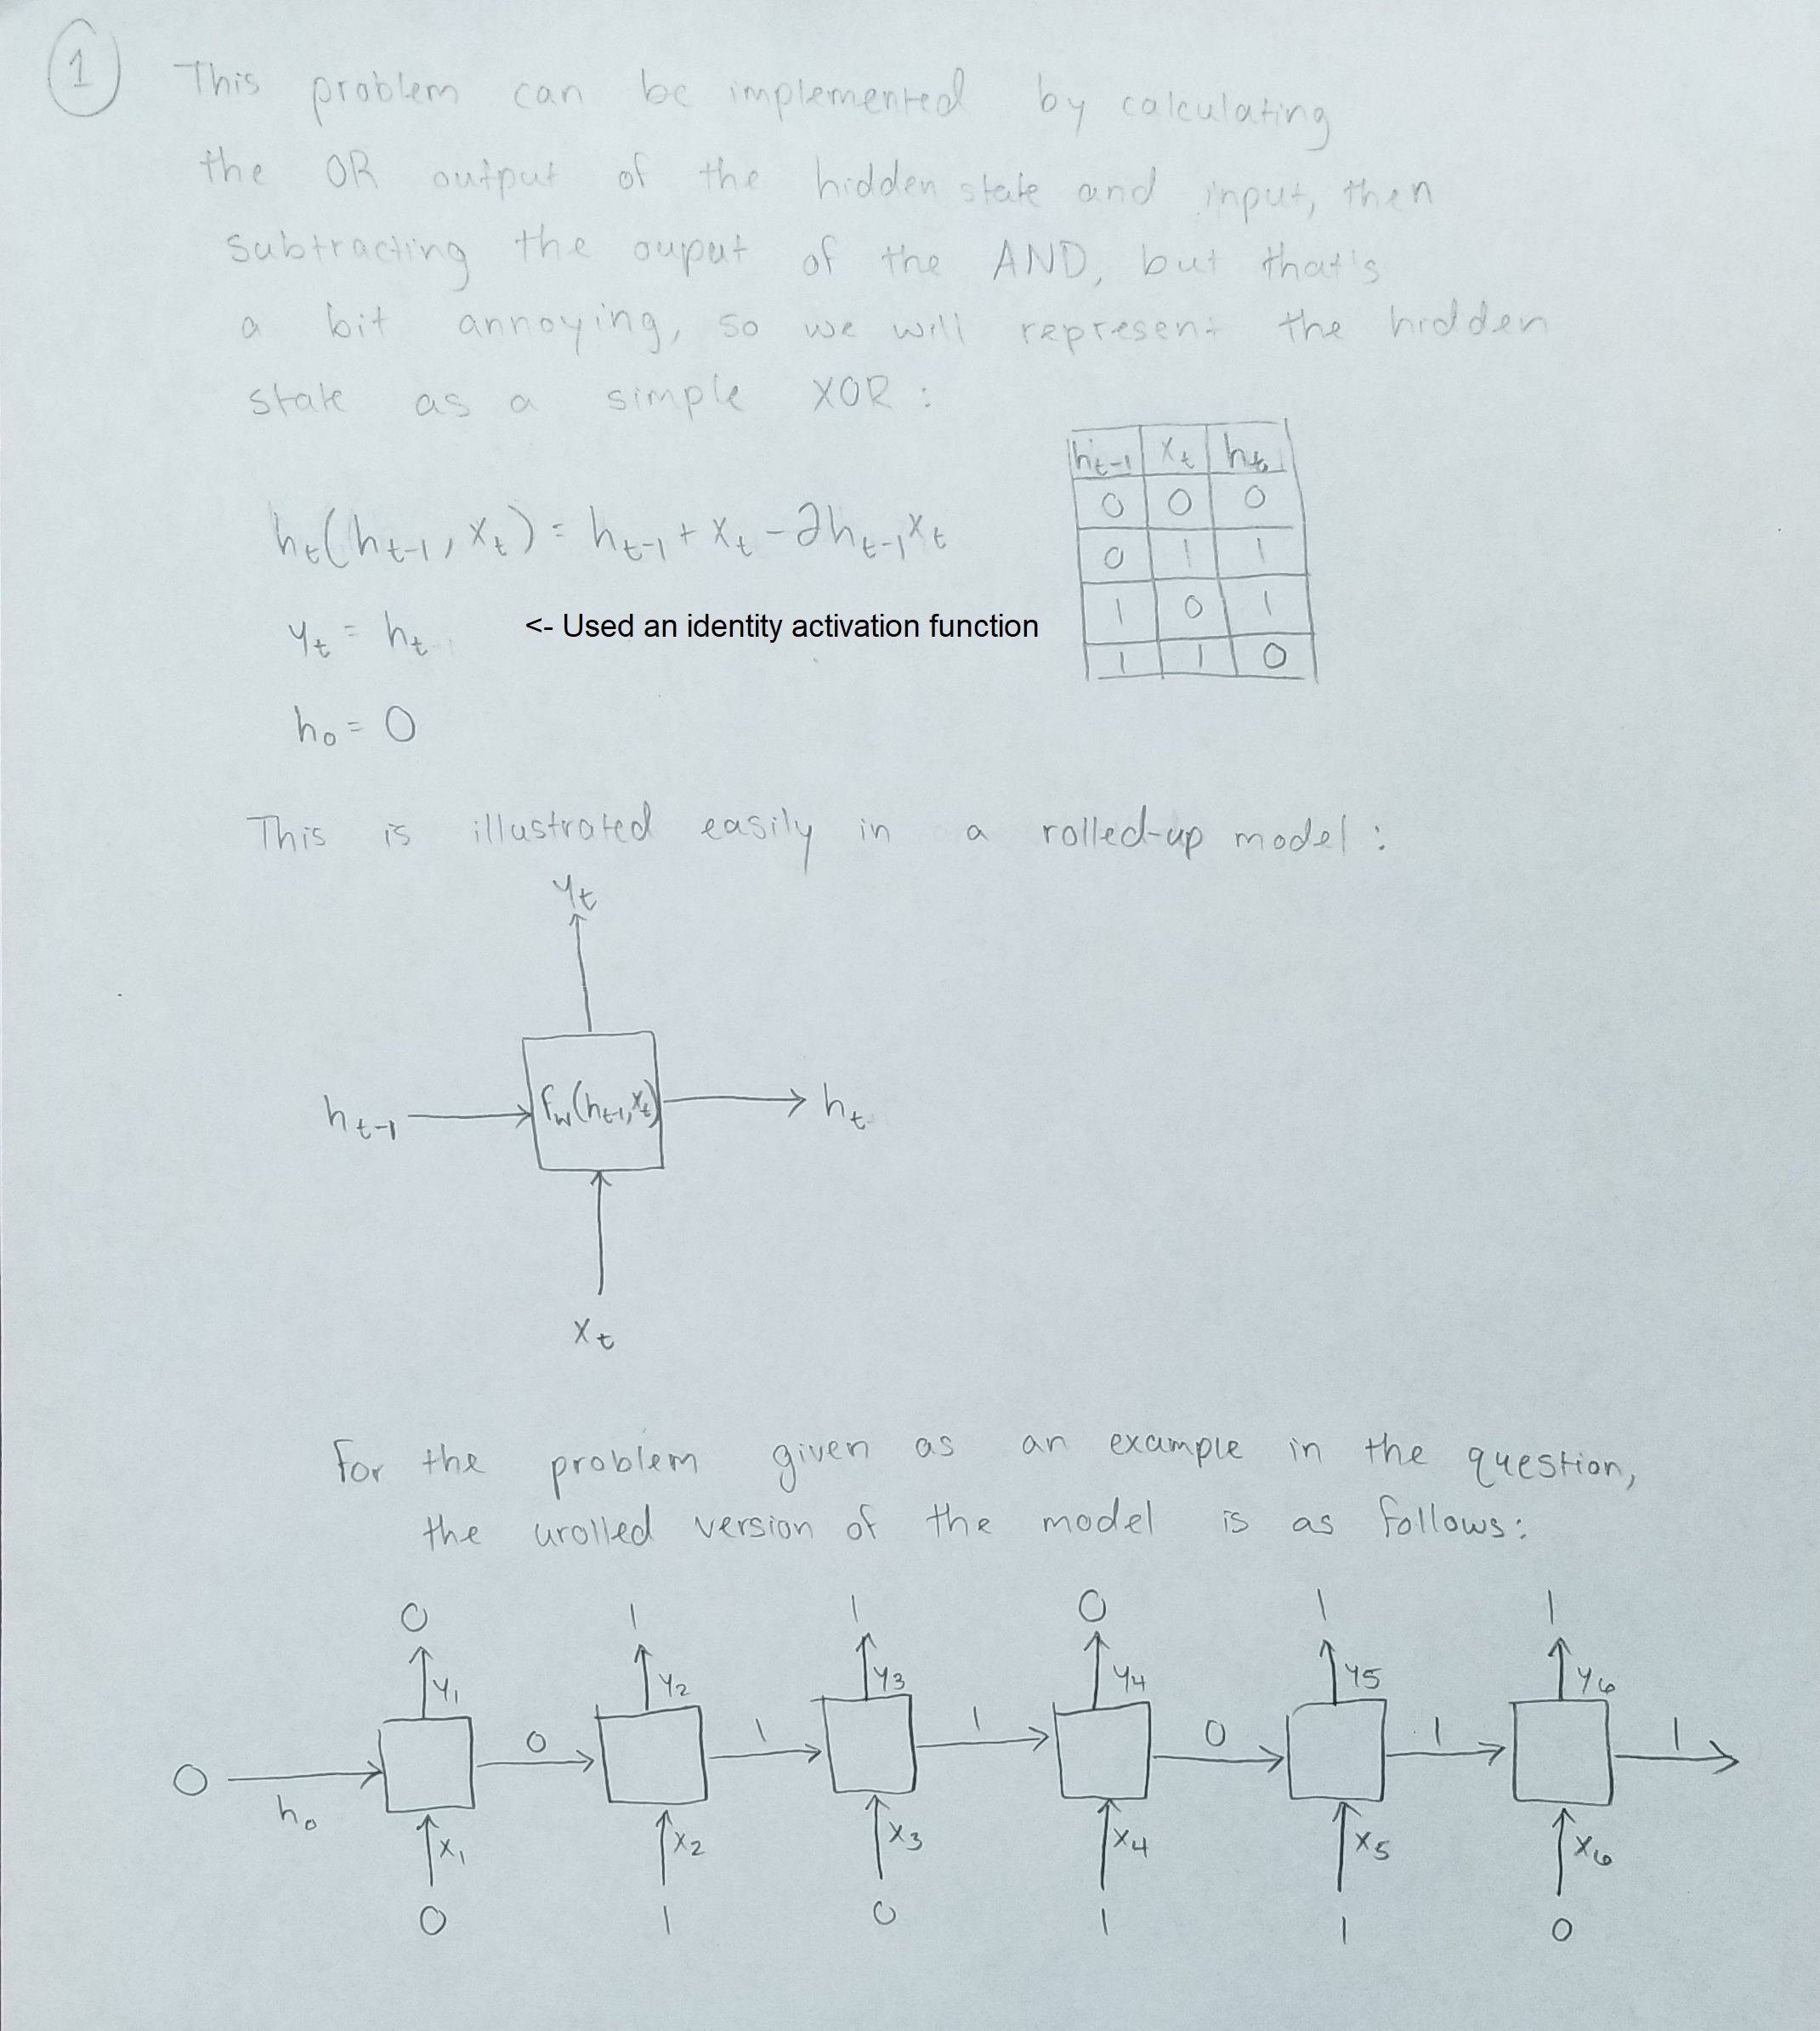 1
This problem can be implemented by calculating
the OR output of the hidden state and input, then
subtracting the ouput of the AND, but that's
a bit annoying, so we will represent the hidden
state as a simple XOR :
h_t(h_{t-1}, x_t) = h_{t-1} + x_t - 2h_{t-1}x_t
y_t = h_t <- Used an identity activation function
h_0 = 0
h_{t-1} x_t h_t
0 0 0
0 1 1
1 0 1
1 1 0
This is illustrated easily in a rolled-up model :
y_t
h_{t-1} f_w(h_{t-1}, x_t) h_t
x_t
For the problem given as an example in the question,
the urolled version of the model is as follows:
0 1 1 0 1 1
y_1 y_2 y_3 y_4 y_5 y_6
0 0 1 1 0 1 1
h_0
x_1 x_2 x_3 x_4 x_5 x_6
0 1 0 1 1 0